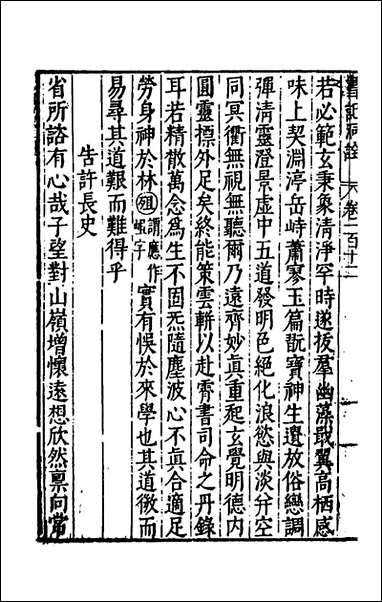 卷二百十二
若必範玄秉象清淨罕時遂拔羣幽藻戢翼高栖感
味上契淵渟岳峙蕭寥玉篇翫寶神生遺放俗戀調
彈清靈澄景虛中五道發明色絕化浪慾與淡并空
同冥衢無視無聽爾乃遠齊妙真重起玄覺明德內
圓靈標外足矣終能策雲軿以赴霄書司命之丹錄
耳若精散萬念為生不固炁隨塵波心不真合適足
勞身神於林𣨼謂應作岨字實有悞於來學也其道微而
易尋其道艱而難得乎
告許長史
省所諮有心哉子登對山嶺增懷遠想欣然稟向當